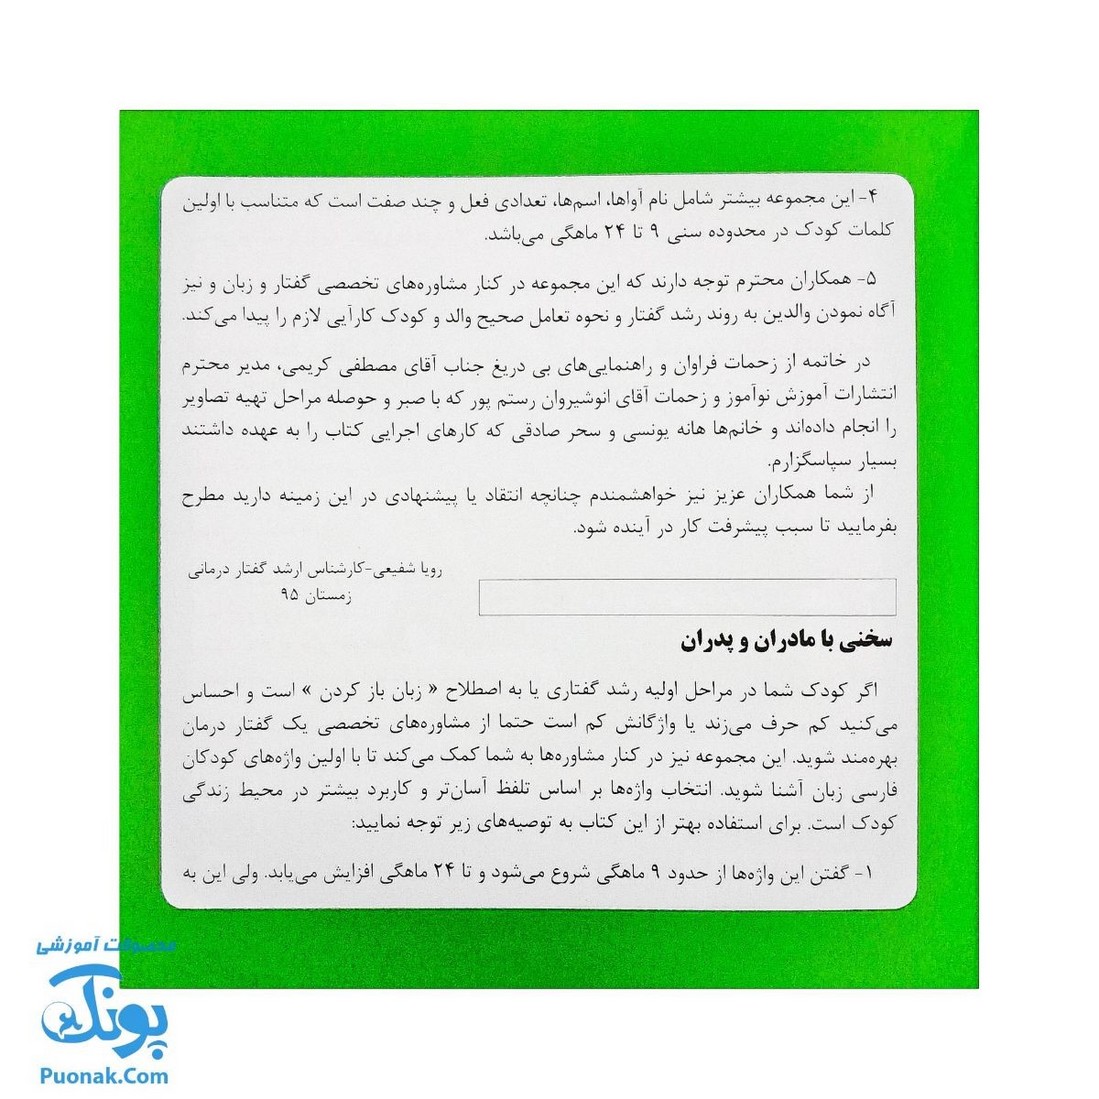 ۴- این مجموعه بیشتر شامل نام آواها، اسم‌ها، تعدادی فعل و چند صفت است که متناسب با اولین
کلمات کودک در محدوده سنی ۹ تا ۲۴ ماهگی می‌باشد.
۵- همکاران محترم توجه دارند که این مجموعه در کنار مشاوره‌های تخصصی گفتار و زبان و نیز
آگاه نمودن والدین به روند رشد گفتار و نحوه تعامل صحیح والد و کودک کارآیی لازم را پیدا می‌کند.
در خاتمه از زحمات فراوان و راهنمایی‌های بی دریغ جناب آقای مصطفی کریمی، مدیر محترم
انتشارات آموزش نوآموز و زحمات آقای انوشیروان رستم پور که با صبر و حوصله مراحل تهیه تصاویر
را انجام داده‌اند و خانم‌ها هانه یونسی و سحر صادقی که کارهای اجرایی کتاب را به عهده داشتند
بسیار سپاسگزارم.
از شما همکاران عزیز نیز خواهشمندم چنانچه انتقاد یا پیشنهادی در این زمینه دارید مطرح
بفرمایید تا سبب پیشرفت کار در آینده شود.
رویا شفیعی-کارشناس ارشد گفتار درمانی
زمستان ۹۵
سخنی با مادران و پدران
اگر کودک شما در مراحل اولیه رشد گفتاری یا به اصطلاح « زبان باز کردن » است و احساس
می‌کنید کم حرف می‌زند یا واژگانش کم است حتما از مشاوره‌های تخصصی یک گفتار درمان
بهره‌مند شوید. این مجموعه نیز در کنار مشاوره‌ها به شما کمک می‌کند تا با اولین واژه‌های کودکان
فارسی زبان آشنا شوید. انتخاب واژه‌ها بر اساس تلفظ آسان‌تر و کاربرد بیشتر در محیط زندگی
کودک است. برای استفاده بهتر از این کتاب به توصیه‌های زیر توجه نمایید:
۱- گفتن این واژه‌ها از حدود ۹ ماهگی شروع می‌شود و تا ۲۴ ماهگی افزایش می‌یابد. ولی این به
محصولات آموزشی
پونک
Puonak.Com